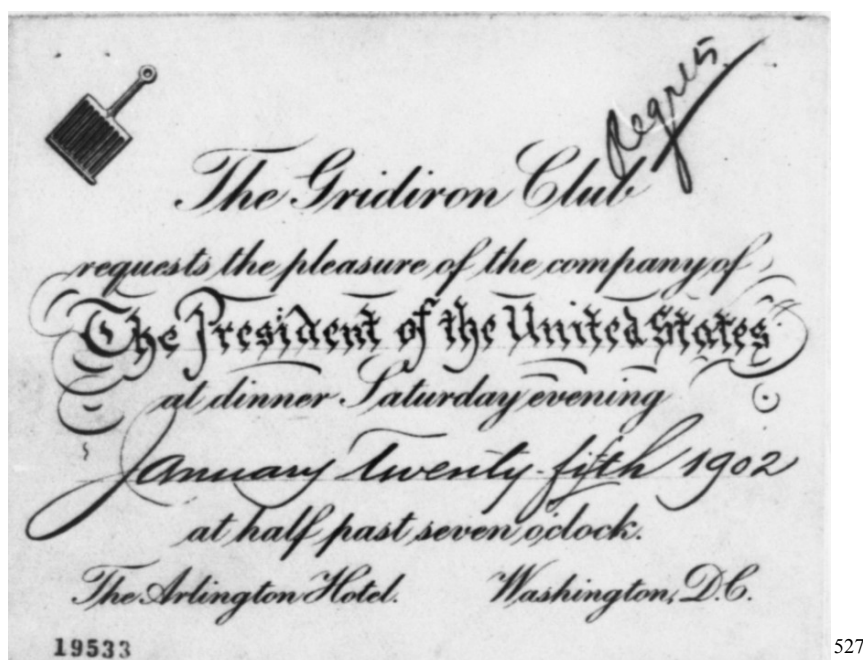 Regrets
The Gridiron Club
requests the pleasure of the company of
The President of the United States
at dinner Saturday evening
January twenty-fifth 1902
at half past seven o'clock.
The Arlington Hotel. Washington, D.C.
19533
527